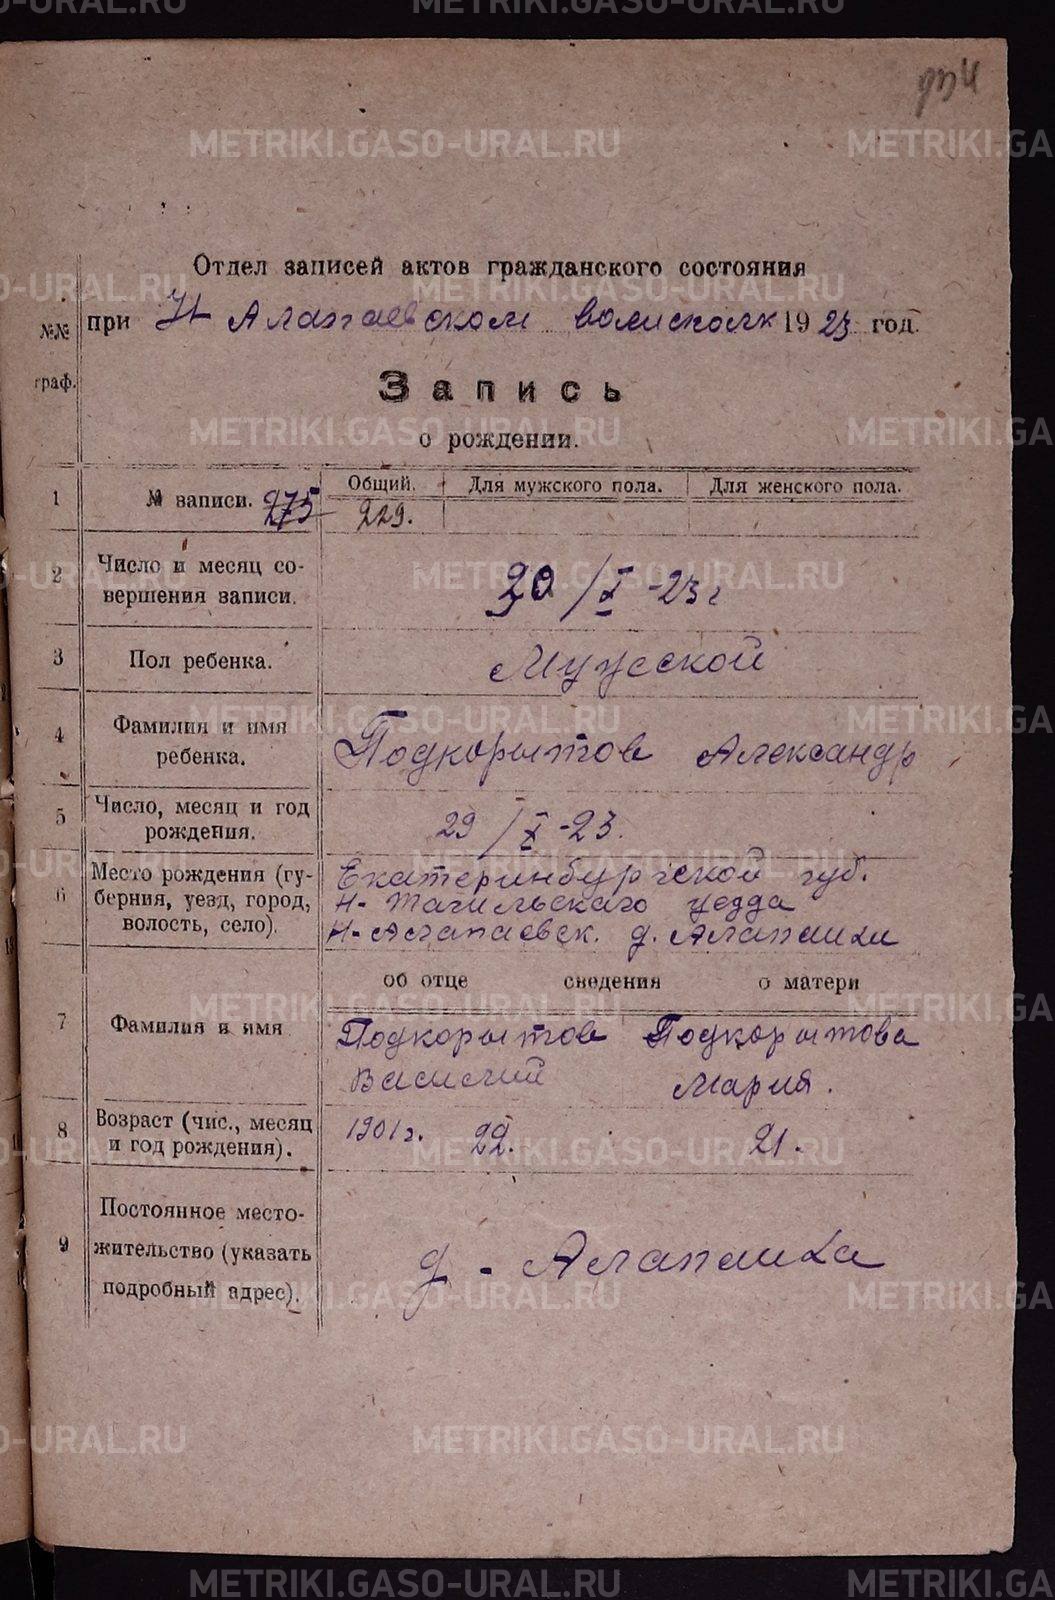 Отдел записей актов гражданского состояния
при Н Алапаевском волисполк 1923 год.
№№ граф.
Запись
о рождении.
1 № записи. 275 Общий. Для мужского пола. Для женского пола.
229.
2 Число и месяц совершения записи. 30/X-23 г
3 Пол ребенка. Мужской
4 Фамилия и имя ребенка. Подкорытов Александр
5 Число, месяц и год рождения. 29/X-23.
6 Место рождения (губерния, уезд, город, волость, село).
Екатеринбургской губ.
Н-Тагильскаго уезда
Н-Алапаевск. д. Алапаиха
об отце сведения о матери
7 Фамилия и имя Подкорытов Подкорытова
Василий Мария.
8 Возраст (чис., месяц и год рождения). 1901 г. 22. 21.
9 Постоянное местожительство (указать подробный адрес). д. Алапаиха
METRIKI.GASO-URAL.RU